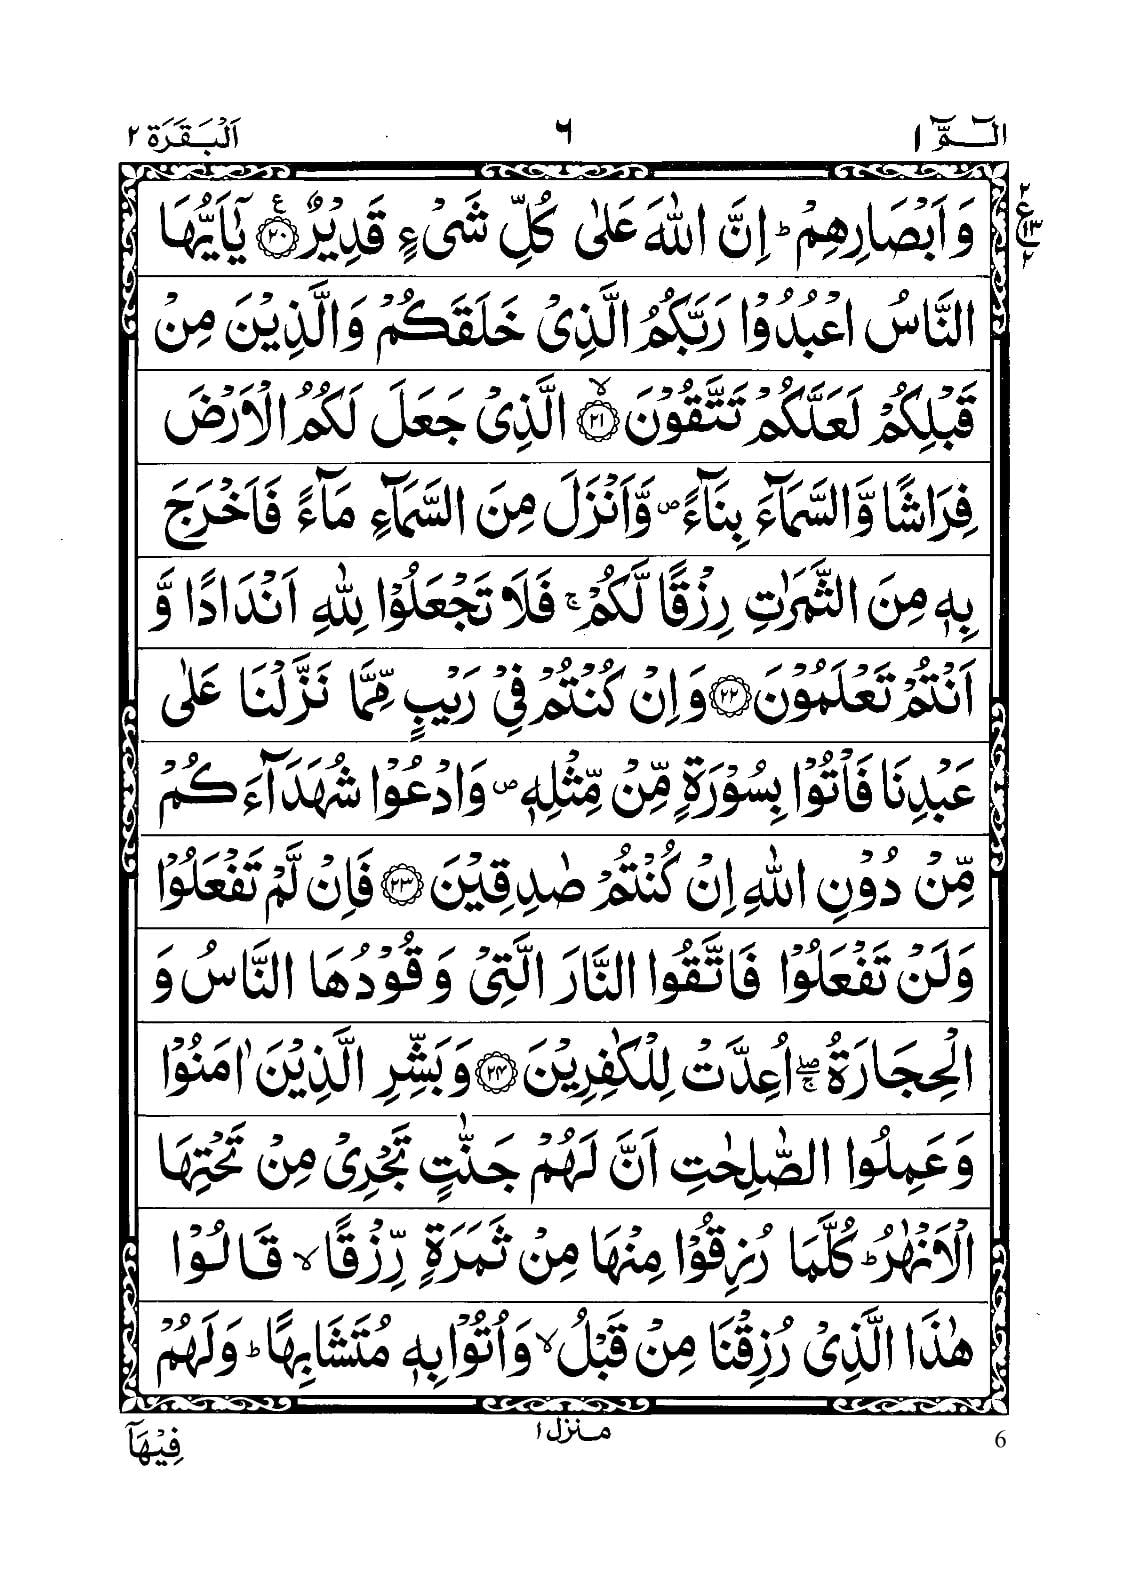 الٓمّٓ ١ ٦ اَلْبَقَرَة ٢
وَاَبْصَارِهِمْ ؕ اِنَّ اللّٰهَ عَلٰى كُلِّ شَىْءٍ قَدِيْرٌ ۧ‏﴿۲۰﴾ يٰٓاَيُّهَا
٢ ع ١٣ ٢
النَّاسُ اعْبُدُوْا رَبَّكُمُ الَّذِىْ خَلَقَكُمْ وَالَّذِيْنَ مِنْ
قَبْلِكُمْ لَعَلَّكُمْ تَتَّقُوْنَ ۙ‏﴿۲۱﴾ الَّذِىْ جَعَلَ لَكُمُ الْاَرْضَ
فِرَاشًا وَّالسَّمَآءَ بِنَآءً ۖ وَّاَنْزَلَ مِنَ السَّمَآءِ مَآءً فَاَخْرَجَ
بِهٖ مِنَ الثَّمَرٰتِ رِزْقًا لَّكُمْ ۚ فَلَا تَجْعَلُوْا لِلّٰهِ اَنْدَادًا وَّ
اَنْتُمْ تَعْلَمُوْنَ ﴿۲۲﴾ وَاِنْ كُنْتُمْ فِىْ رَيْبٍ مِّمَّا نَزَّلْنَا عَلٰى
عَبْدِنَا فَاْتُوْا بِسُوْرَةٍ مِّنْ مِّثْلِهٖ ۖ وَادْعُوْا شُهَدَآءَكُمْ
مِّنْ دُوْنِ اللّٰهِ اِنْ كُنْتُمْ صٰدِقِيْنَ ﴿۲۳﴾ فَاِنْ لَّمْ تَفْعَلُوْا
وَلَنْ تَفْعَلُوْا فَاتَّقُوا النَّارَ الَّتِىْ وَقُوْدُهَا النَّاسُ وَ
الْحِجَارَةُ ۖۚ اُعِدَّتْ لِلْكٰفِرِيْنَ ﴿۲۴﴾ وَبَشِّرِ الَّذِيْنَ اٰمَنُوْا
وَعَمِلُوا الصّٰلِحٰتِ اَنَّ لَهُمْ جَنّٰتٍ تَجْرِىْ مِنْ تَحْتِهَا
الْاَنْهٰرُ ؕ كُلَّمَا رُزِقُوْا مِنْهَا مِنْ ثَمَرَةٍ رِّزْقًا ۙ قَالُوْا
هٰذَا الَّذِىْ رُزِقْنَا مِنْ قَبْلُ ۙ وَاُتُوْا بِهٖ مُتَشَابِهًا ؕ وَلَهُمْ
6 منزل ١ فِيْهَآ